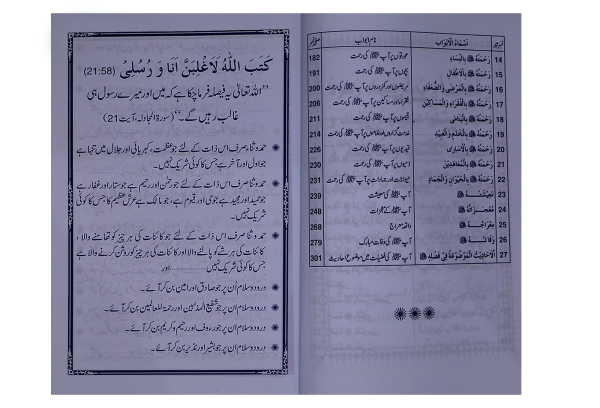 نمبر شمار اَسْمَاءُ الْاَبْوَابِ نام ابواب صفحہ نمبر
14 رَحْمَتُهُ ﷺ بِالنِّسَاءِ عورتوں پر آپ ﷺ کی رحمت 182
15 رَحْمَتُهُ ﷺ بِالْاَطْفَالِ بچوں پر آپ ﷺ کی رحمت 191
16 رَحْمَتُهُ ﷺ بِالْمَرْضٰى وَالضُّعَفَاءِ مریضوں اور کمزوروں پر آپ ﷺ کی رحمت 200
17 رَحْمَتُهُ ﷺ بِالْفُقَرَاءِ وَالْمَسَاكِيْنِ فقراء اور مساکین پر آپ ﷺ کی رحمت 206
18 رَحْمَتُهُ ﷺ بِالْيَتَامٰى یتیموں پر آپ ﷺ کی رحمت 211
19 رَحْمَتُهُ ﷺ بِالْخَدَمِ وَالْعَبِيْدِ آپ ﷺ کی رحمت 214
20 رَحْمَتُهُ ﷺ بِالْاُسَارٰى قیدیوں پر آپ ﷺ کی رحمت 226
21 رَحْمَتُهُ ﷺ بِالْمُعَاهَدِيْنَ ذمیوں پر آپ ﷺ کی رحمت 230
22 رَحْمَتُهُ ﷺ بِالْحَيْوَانِ وَالْجَمَادِ حیوانات اور جمادات پر آپ ﷺ کی رحمت 231
23 مَعِيْشَتُهُ ﷺ آپ ﷺ کی معیشت 239
24 مُعْجِزَاتُهُ ﷺ آپ ﷺ کے معجزات 248
25 مِعْرَاجُهُ ﷺ واقعہ معراج 268
26 وَفَاتُهُ ﷺ آپ ﷺ کی وفات مبارک 279
27 اَلْاَحَادِيْثُ الْمَوْضُوْعَةُ فِيْ فَضْلِهِ ﷺ آپ ﷺ کی فضیلت میں موضوع احادیث 301
كَتَبَ اللّٰهُ لَاَغْلِبَنَّ اَنَا وَ رُسُلِيْ (21:58)
"اللہ تعالیٰ یہ فیصلہ فرما چکا ہے کہ میں اور میرے رسول ہی
غالب رہیں گے۔" (سورۃ المجادلہ، آیت 21)
حمد و ثنا صرف اس ذات کے لئے جو عظمت، کبریائی اور جلال میں تنہا ہے
جو اول اور آخر ہے جس کا کوئی شریک نہیں۔
حمد و ثنا صرف اس ذات کے لئے جو رحمٰن اور رحیم ہے جو ستار اور غفار ہے
جو حمید اور مجید ہے جو حی اور قیوم ہے، جو مالک ہے عرش عظیم کا جس کا کوئی
شریک نہیں۔
حمد و ثنا صرف اس ذات کے لئے جو کائنات کی ہر چیز کو تھامنے والا،
کائنات کی ہر شے کو پالنے والا اور کائنات کی ہر چیز کو روشن کرنے والا ہے
جس کا کوئی شریک نہیں ............ اور
درود و سلام اُن پر جو صادق اور امین بن کر آئے۔
درود و سلام ان پر جو شفیع المذنبین اور رحمۃ للعالمین بن کر آئے۔
درود و سلام ان پر جو رءوف اور رحیم و کریم بن کر آئے۔
درود و سلام ان پر جو بشیر اور نذیر بن کر آئے۔